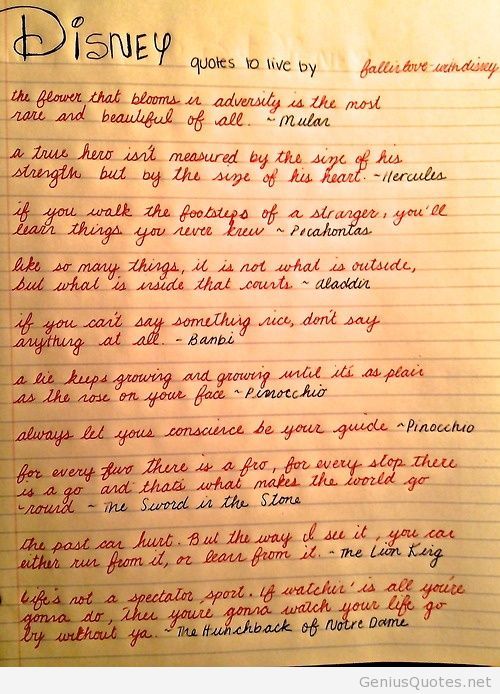 Disney quotes to live by fallinlove-withdisney
the flower that blooms in adversity is the most
rare and beautiful of all. ~Mulan
a true hero isn't measured by the size of his
strength but by the size of his heart. ~Hercules
if you walk the footsteps of a stranger, you'll
learn things you never knew ~ Pocahontas
like so many things, it is not what is outside,
but what is inside that counts ~ Aladdin
if you can't say something nice, don't say
anything at all. - Bambi
a lie keeps growing and growing until it's as plain
as the nose on your face ~Pinocchio
always let your conscience be your guide ~Pinocchio
for every two there is a fro, for every stop there
is a go and that's what makes the world go
-round ~ The Sword in the Stone
the past can hurt. But the way I see it, you can
either run from it, or learn from it. ~ The Lion King
Life's not a spectator sport. If watchin' is all you're
gonna do, then you're gonna watch your life go
by without ya. ~The Hunchback of Notre Dame
GeniusQuotes.net